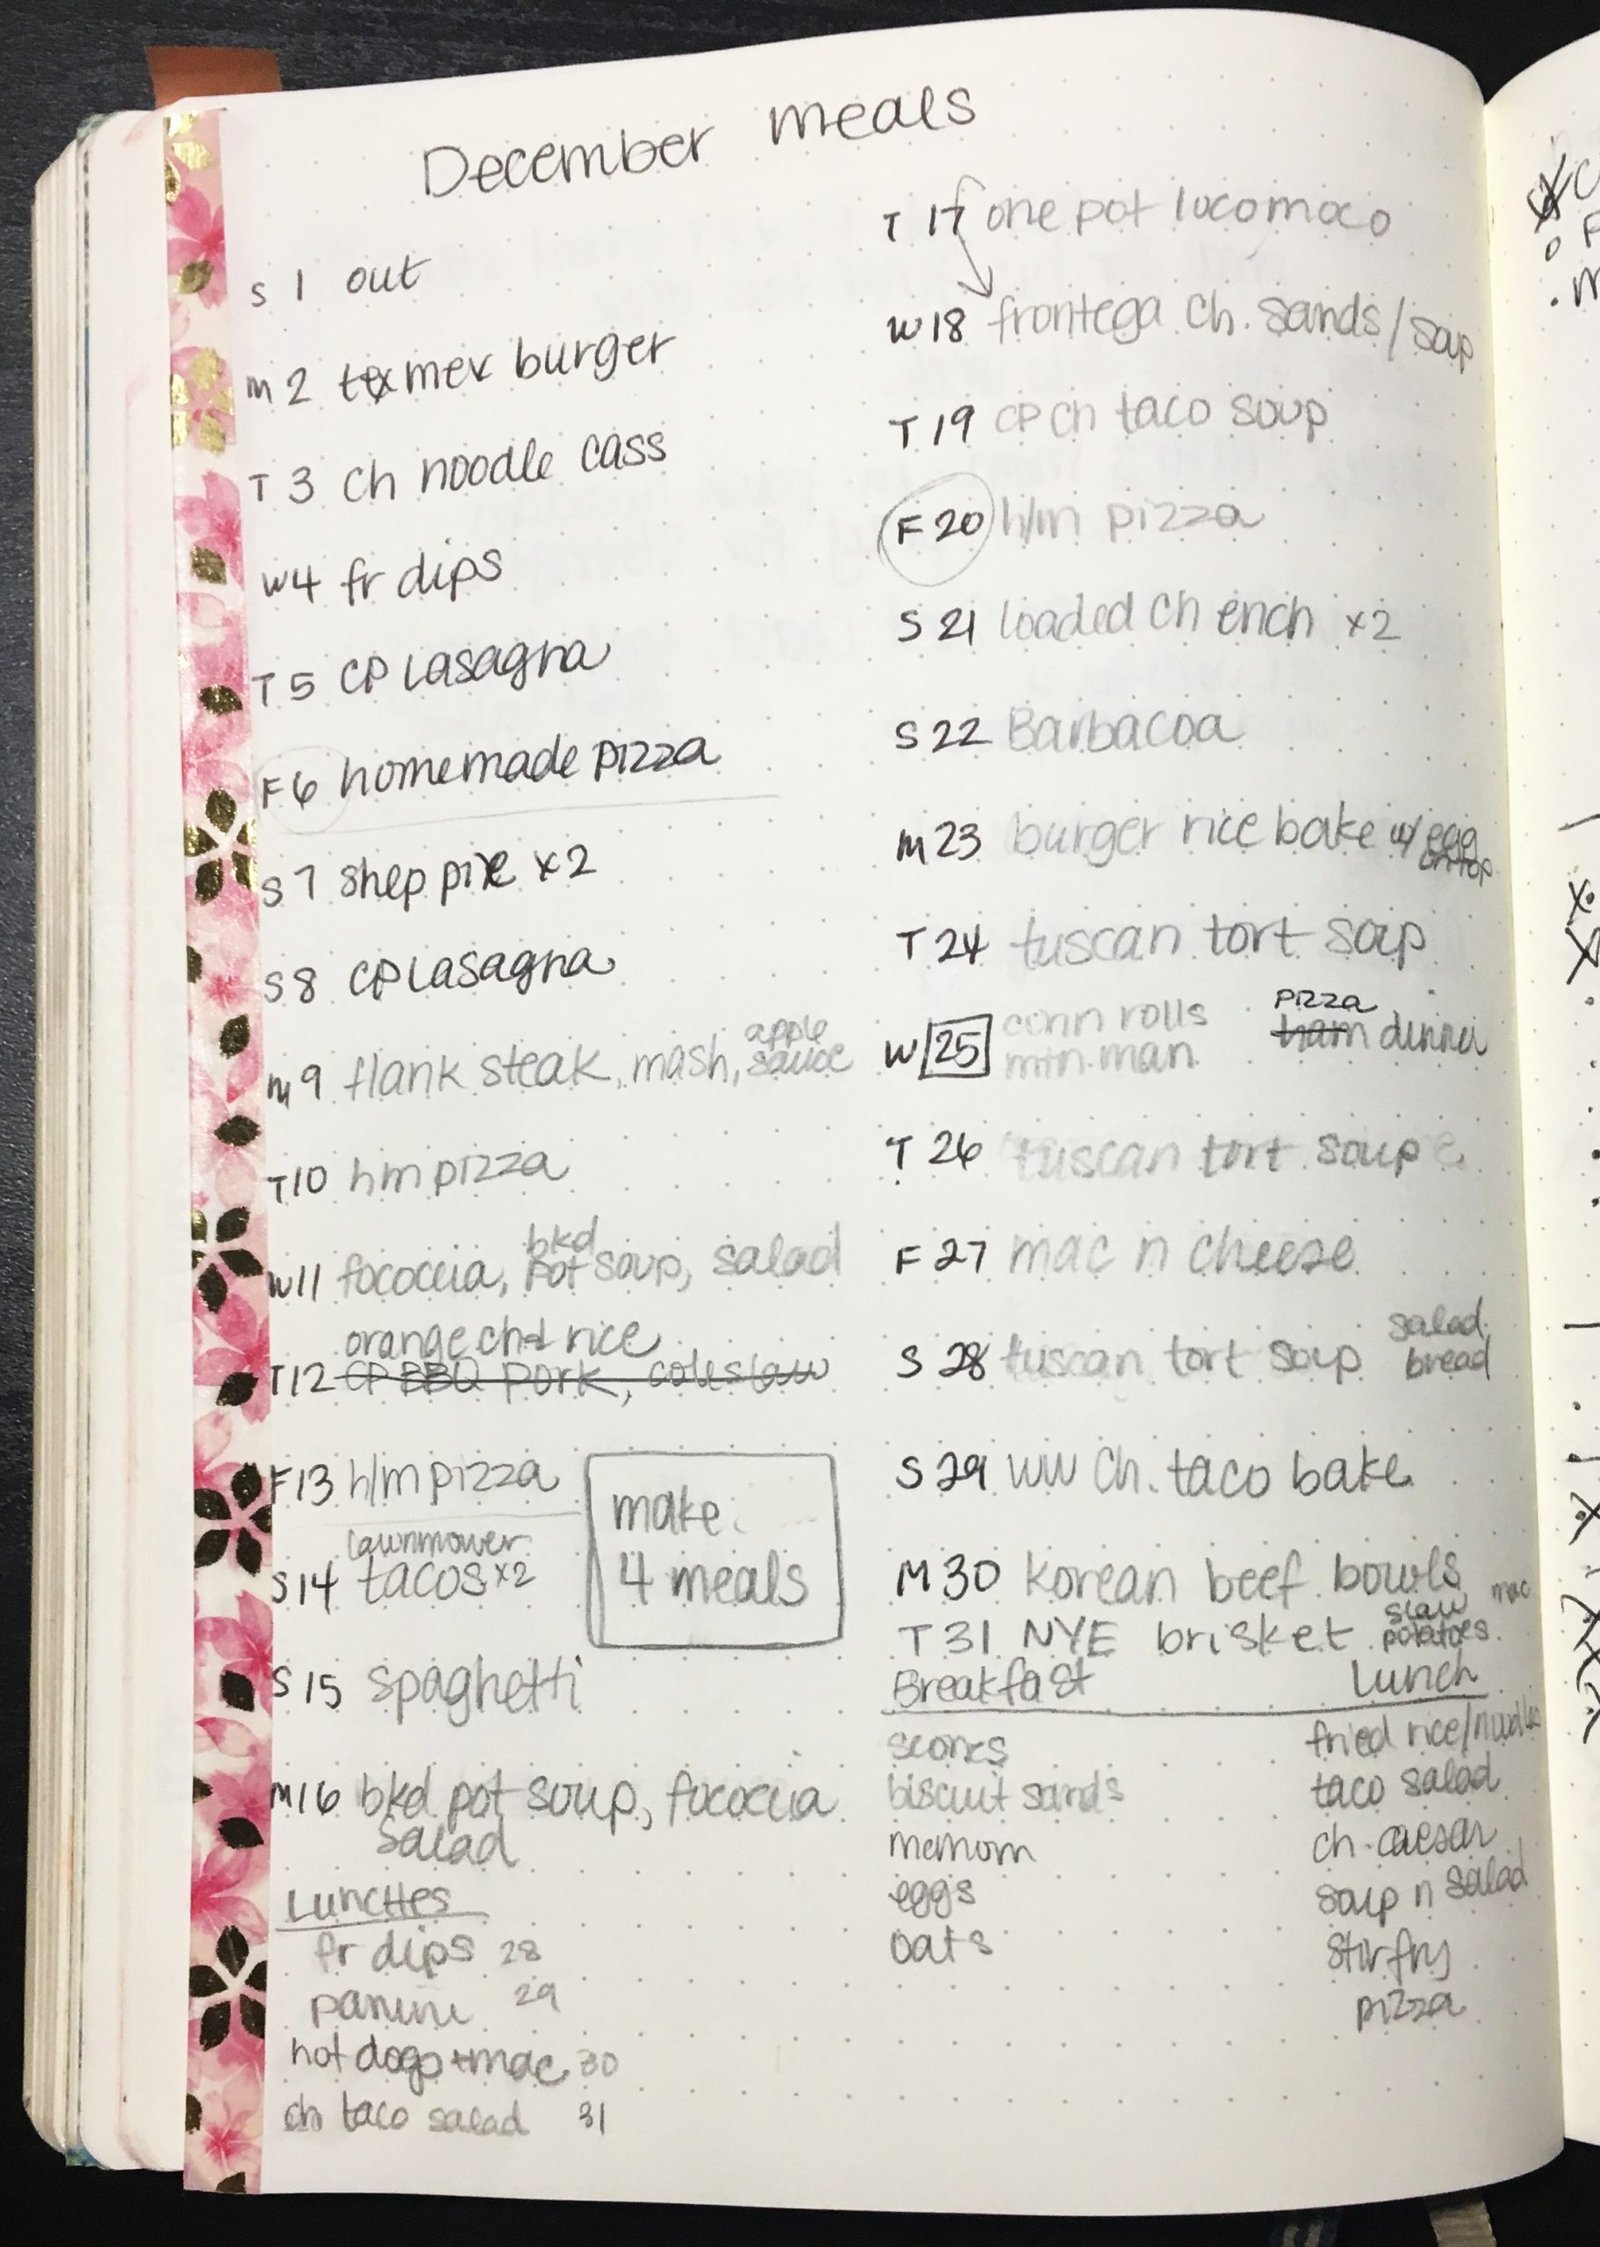 December meals
S 1 out
M 2 tex mex burger
T 3 ch noodle cass
W 4 fr dips
T 5 CP Lasagna
F 6 homemade pizza
S 7 shep pie x2
S 8 CP Lasagna
M 9 flank steak, mash, apple sauce
T 10 hm pizza
W 11 fococcia, bkd pot soup, salad
orange ch + rice
T 12 CP BBQ pork, coleslaw
F 13 h/m pizza
lawnmower
S 14 tacos x2
make
4 meals
S 15 spaghetti
M 16 bkd pot soup, fococcia
salad
Lunches
fr dips 28
panini 29
hot dogs + mac 30
ch taco salad 31
T 17 one pot locomoco
W 18 frontega ch. sands / soup
T 19 CP ch taco soup
F 20 h/m pizza
S 21 loaded ch ench x2
S 22 Barbacoa
M 23 burger rice bake w/ egg
on top
T 24 tuscan tort soup
pizza
W 25 cinn rolls ham dinner
mtn. man
T 26 tuscan tort soup
F 27 mac n cheese
S 28 tuscan tort soup salad
bread
S 29 WW ch. taco bake
M 30 korean beef bowls
slaw mac
T 31 NYE brisket potatoes
Breakfast
scones
biscuit sands
mcmom
eggs
oats
Lunch
fried rice/noodles
taco salad
ch. caesar
soup n salad
stir fry
pizza